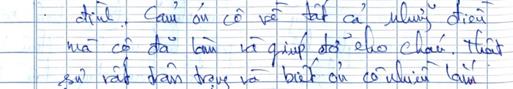 định. Cảm ơn cô về tất cả những điều
mà cô đã làm và giúp đỡ cho cháu. Thật
sự rất trân trọng và biết ơn cô nhiều lắm